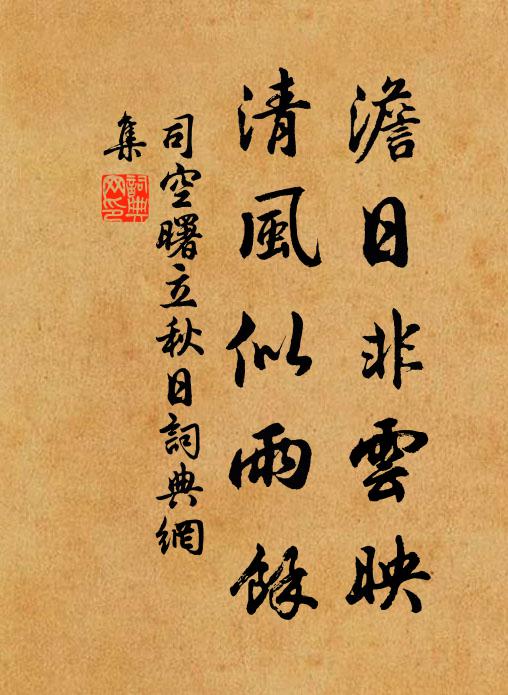 澹日非雲映
清風似雨餘
司空曙立秋日詞典網
集
詞典
网印